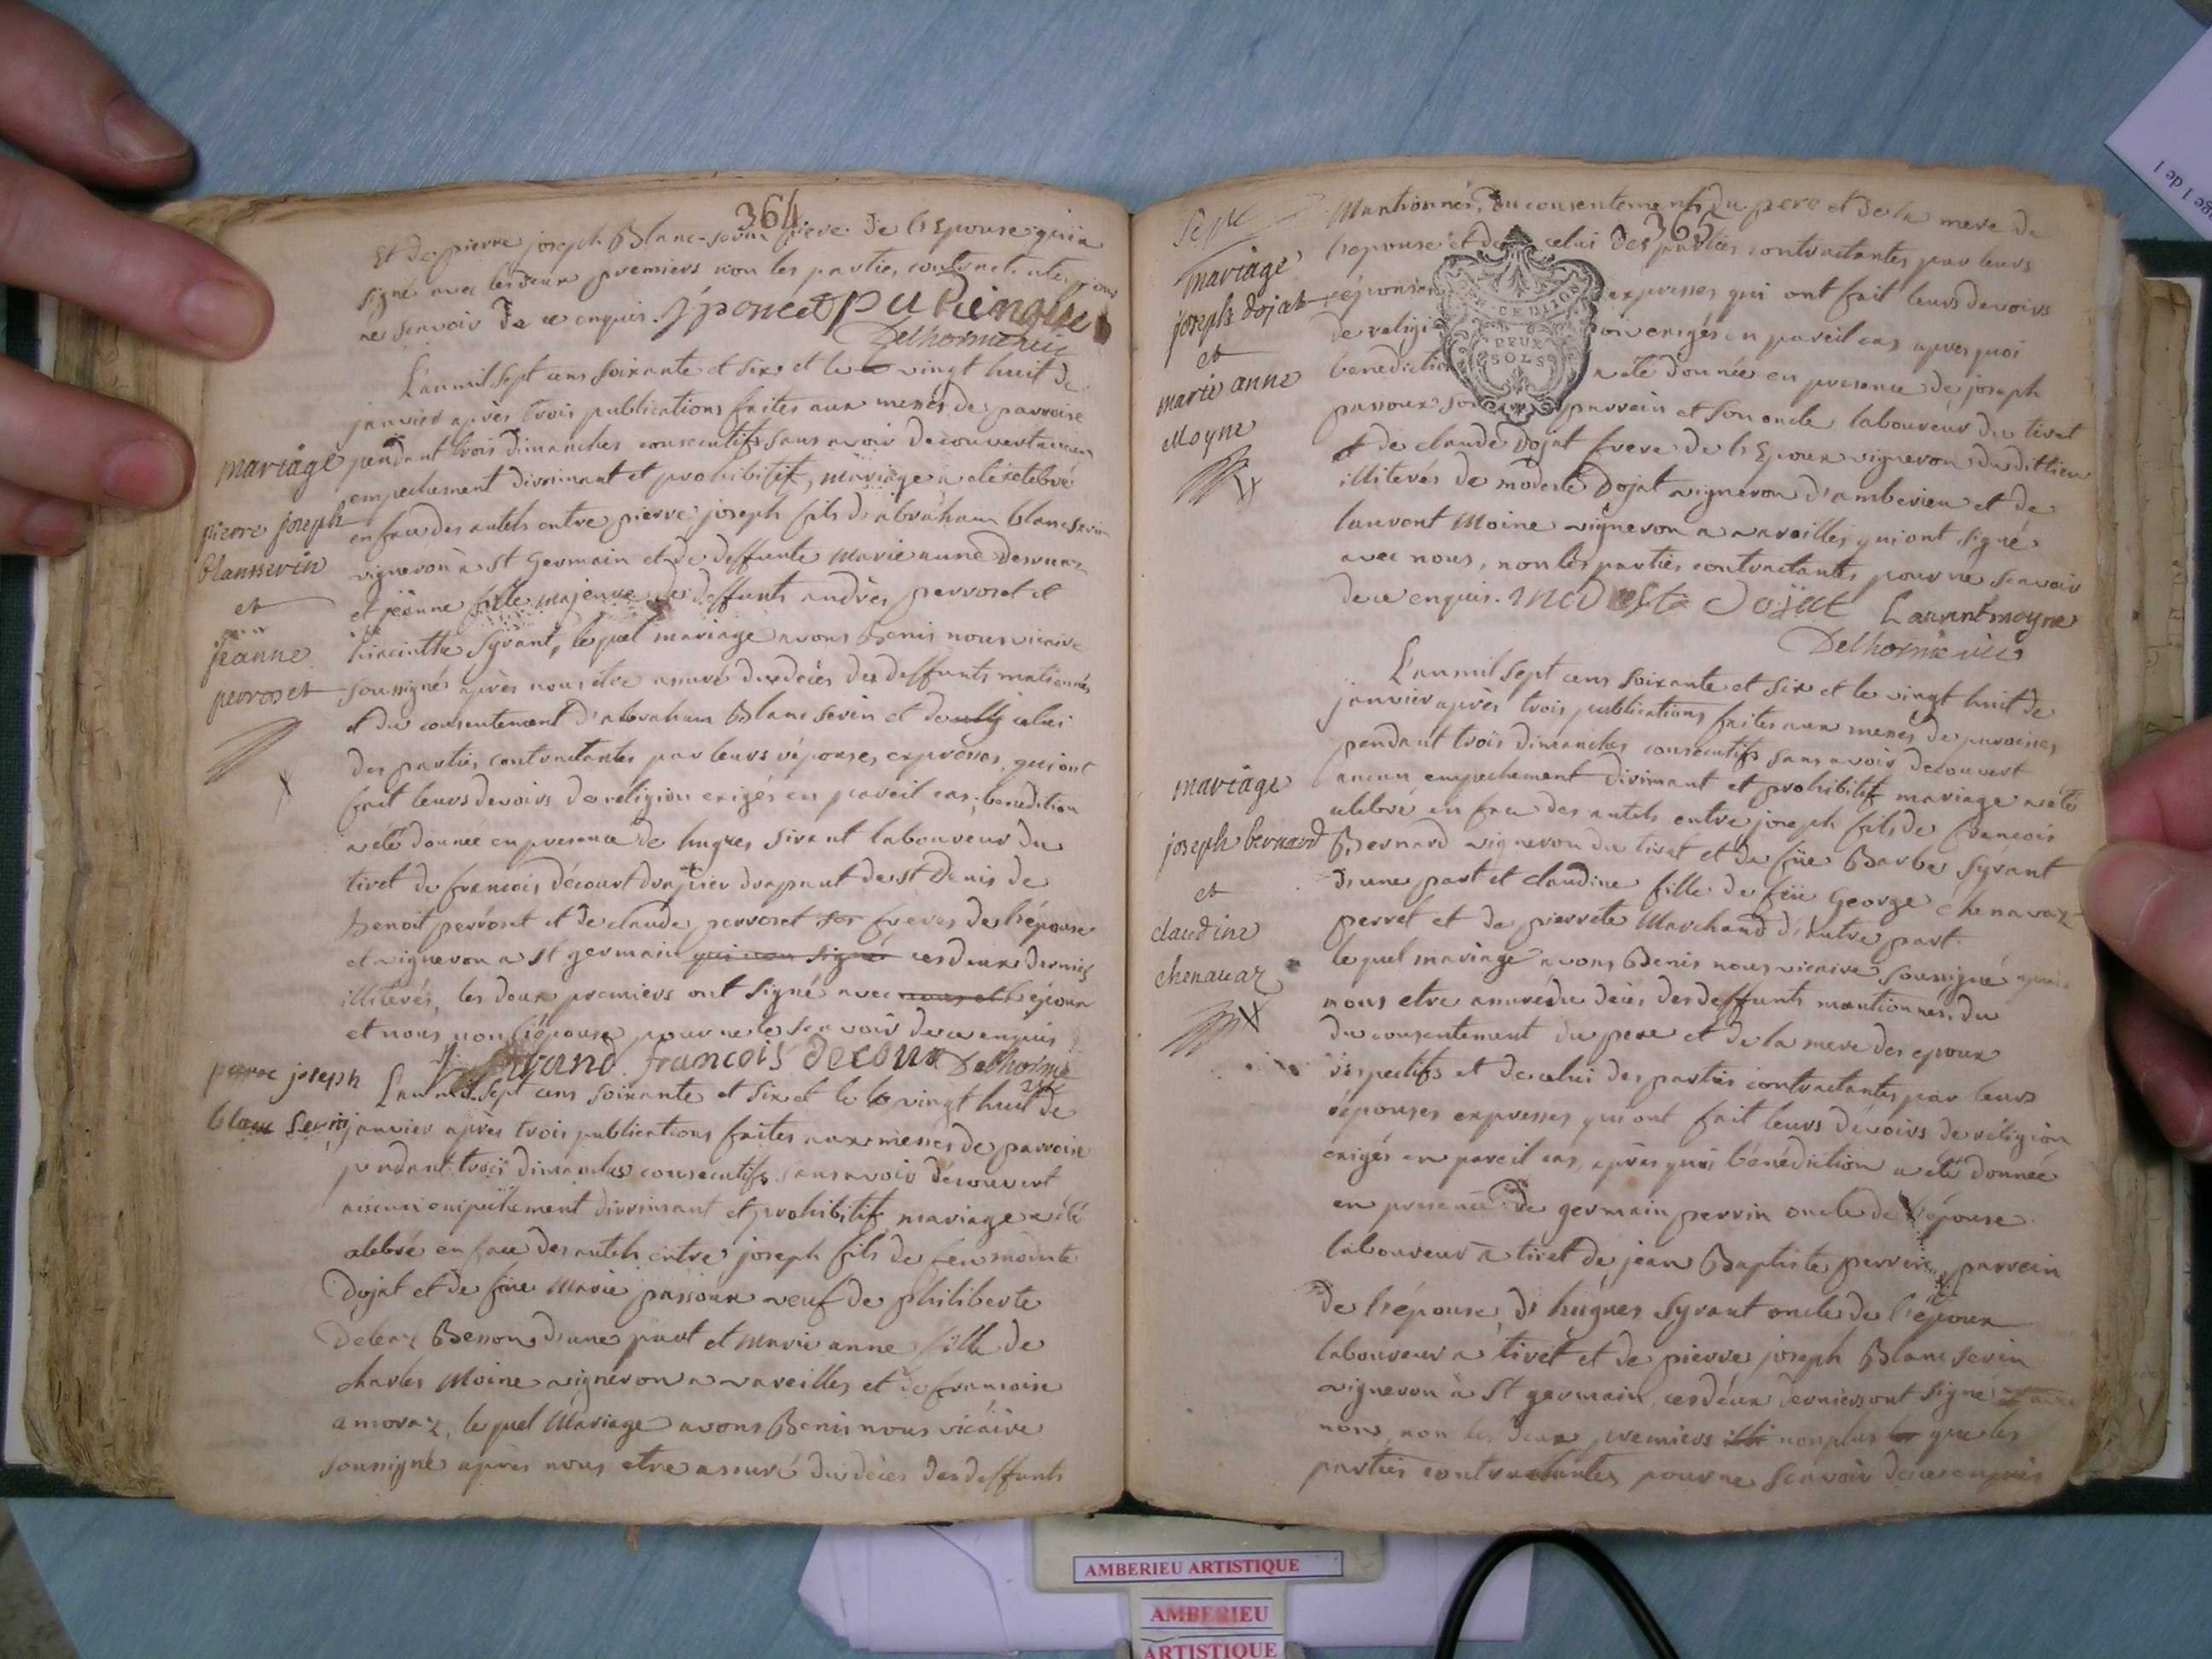 364
Et de pierre joseph Blanc-serin frere de l'Epouse qui a
signé avec les deux premiers non les parties contractantes pour
ne scavoir de ce enquis. J poncet
Delhorme vic
L'an mil sept cens soixante et six et le vingt huit de
janvier après trois publications faites aux messes de parroise
pendant trois dimanches consecutifs sans avoir decouvert aucun
empechement dirimant et prohibitif, mariage a été célébré
en face des autels entre pierre joseph fils d'abraham blancserin
vigneron a st Germain et de deffunte Marie anne
et jeanne fille majeure de deffunts andrés perroset et
hiacinthe Syvant, le quel mariage avons Benis nous vicaire
soussigné après nous être assuré du deces des deffunts mationnés
et du consentement d'abraham Blanc serin et de celui
des parties contractantes par leurs réponses expresses, qui ont
fait leurs devoirs de religion exigés en pareil cas; benediction
a été donnée en presence de hugues sirant laboureur du
tiret de francois décourt drapier drapant de st Denis de
benoit perroset et de claude perroset freres de l'épouse
et vigneron a st germain qui non signé ces deux derniers
illiterés, les deux premiers ont signé avec nous et l'époux
et nous non l'épouse pour ne le scavoir de ce enquis
francois decour Delhorme
vic
mariage
pierre joseph
blansserin
et
jeanne
perroset
pierre joseph
blanc serin
L'an mil sept cens soixante et six et le vingt huit de
janvier après trois publications faites aux messes de parroise
pendant trois dimanches consecutifs sans avoir découvert
aucun empechement dirrimant et prohibitif mariage a été
celebré en face des autels entre joseph fils de feu modeste
Dojat et de füe Marie passoux veuf de philiberte
Deleaz Besson d'une part et Marie anne fille de
charles Moine vigneron a vareilles et de francoise
amoraz, le quel Mariage avons Benis nous vicaire
soussigné après nous etre assuré du déces des deffunts
365
Mantionnés, du consentement du pere et de la mere de
l'epouse et de celui des parties contractantes par leurs
réponses expresses qui ont fait leurs devoirs
de religion exigés en pareil cas apres quoi
benediction a été donnée en presence de joseph
passoux son parrain et son oncle laboureur du tiret
et de claude Dojat frere de l'Epoux vigneron du dit lieu
illiterés de modeste Dojat vigneron d'amberieu et de
laurent Moine vigneron a vareilles qui ont signé
avec nous, non les parties contractantes pour ne scavoir
de ce enquis. modeste Dojat Laurent moyne
Delhorme vic
DEUX
SOLS
mariage
joseph dojat
et
marie anne
Moyne
L'an mil sept cens soixante et six et le vingt huit de
janvier après trois publications faites aux messes de paroises
pendant trois dimanches consecutifs sans avoir decouvert
aucun empechement dirimant et prohibitif mariage a été
celebré en face des autels entre joseph fils de francois
Bernard vigneron du tiret et de füe Barbe Syvant
d'une part et claudine fille de feü George chenavaz
perret et de pierrete Marchand d'autre part.
le quel mariage avons Benis nous vicaire soussigné après
nous etre assuré du déces des deffunts mantionnés, du
du consentement du pere et de la mere des epoux
respectifs et de celui des parties contractantes par leurs
réponses expresses qui ont fait leurs devoirs de réligion
exigés en pareil cas, après quoi bénédiction a été donnée
en presence de germain perrin oncle de l'épouse
laboureur a tiret de jean Baptiste perrin parrein
de l'épouse, d'hugues Syvant oncle de l'époux
laboureur a tiret et de pierre joseph Blanc serin
vigneron a St germain, ces deux derniers ont signé
nous, non les deux premiers non plus que les
parties contractantes pour ne scavoir de ce enquis
mariage
joseph bernard
et
claudine
chenavaz
AMBERIEU ARTISTIQUE
AMBERIEU
ARTISTIQUE